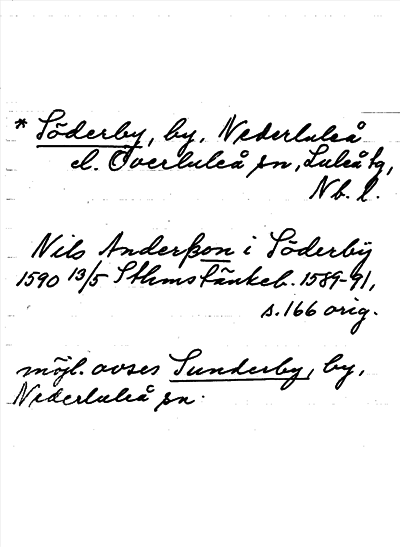 * Söderby, by, Nederluleå
el. Överluleå sn, Luleå tg,
Nb. l.
Nils Anderßon i Söderbÿ
1590 13/5 Sthms tänkeb. 1589-91,
s. 166 orig.
möjl. avses Sunderby, by,
Nederluleå sn.